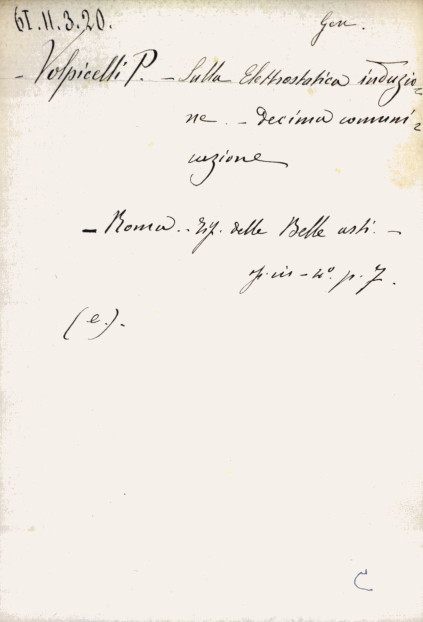 61.11.3.20. Gen.
- Volpicelli P. - Sulla Elettrostatica induzio-
ne. - Decima comuni-
cazione
- Roma. - Tip. delle Belle arti. -
op. in - 4º. p. 7.
(e.).
C